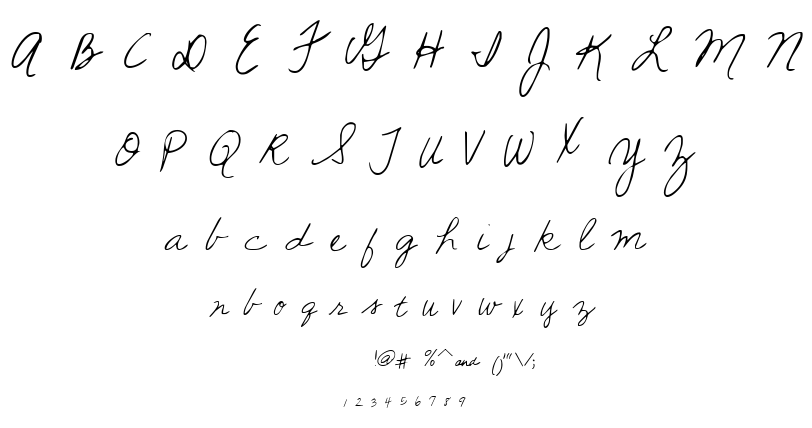 A B C D E F G H I J K L M N
O P Q R S T U V W X Y Z
a b c d e f g h i j k l m
n b o q r s t u v w x y z
!@# %^and ()"'\/;
1 2 3 4 5 6 7 8 9